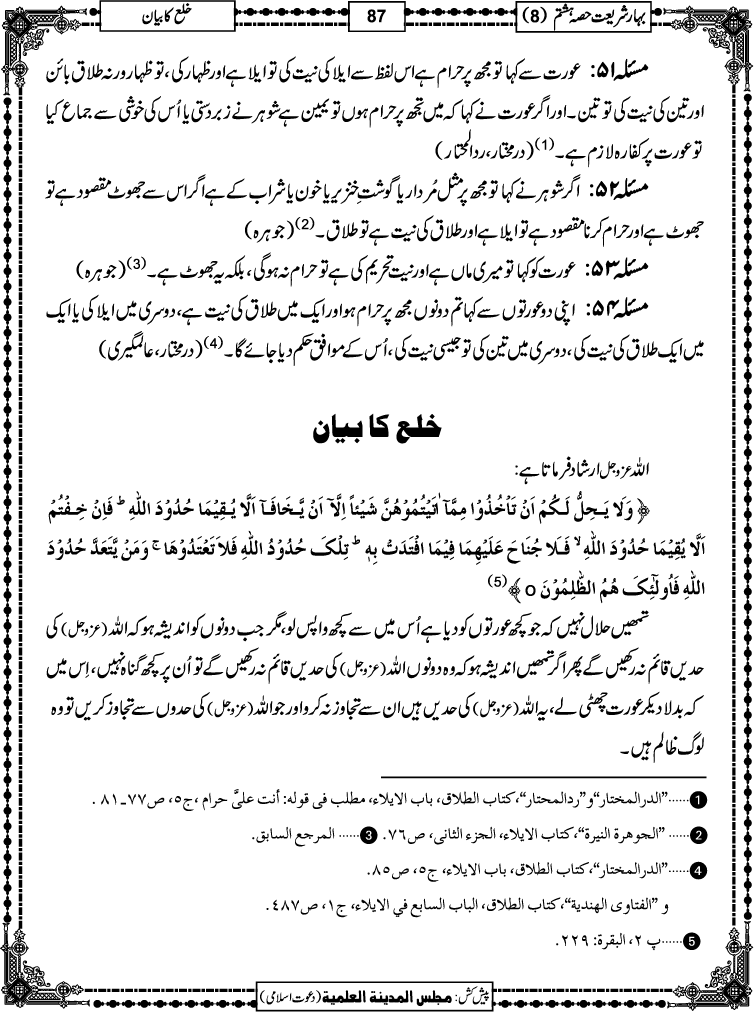 بہارِ شریعت حصہ ہشتم (8)
87
خلع کا بیان
مسئلہ ۵۱: عورت سے کہا تو مجھ پر حرام ہے اس لفظ سے ایلا کی نیت کی تو ایلا ہے اور ظہار کی، تو ظہار ورنہ طلاق بائن
اور تین کی نیت کی تو تین۔ اور اگر عورت نے کہا کہ میں تجھ پر حرام ہوں تو یمین ہے شوہر نے زبردستی یا اُس کی خوشی سے جماع کیا
تو عورت پر کفارہ لازم ہے۔(1) (درمختار، ردالمحتار)
مسئلہ ۵۲: اگر شوہر نے کہا تو مجھ پر مثل مُردار یا گوشتِ خنزیر یا خون یا شراب کے ہے اگر اس سے جھوٹ مقصود ہے تو
جھوٹ ہے اور حرام کرنا مقصود ہے تو ایلا ہے اور طلاق کی نیت ہے تو طلاق۔(2) (جوہرہ)
مسئلہ ۵۳: عورت کو کہا تو میری ماں ہے اور نیت تحریم کی ہے تو حرام نہ ہوگی، بلکہ یہ جھوٹ ہے۔(3) (جوہرہ)
مسئلہ ۵۴: اپنی دو عورتوں سے کہا تم دونوں مجھ پر حرام ہو اور ایک میں طلاق کی نیت ہے، دوسری میں ایلا کی یا ایک
میں ایک طلاق کی نیت کی، دوسری میں تین کی تو جیسی نیت کی، اُس کے موافق حکم دیا جائے گا۔(4) (درمختار، عالمگیری)
خلع کا بیان
اللہ عزوجل ارشاد فرماتا ہے:
﴿ وَلَا یَحِلُّ لَکُمْ اَنْ تَاْخُذُوْا مِمَّاۤ اٰتَیْتُمُوْھُنَّ شَیْـًٔا اِلَّاۤ اَنْ یَّخَافَاۤ اَلَّا یُقِیْمَا حُدُوْدَ اللّٰہِ ؕ فَاِنْ خِفْتُمْ
اَلَّا یُقِیْمَا حُدُوْدَ اللّٰہِ ۙ فَلَا جُنَاحَ عَلَیْھِمَا فِیْمَا افْتَدَتْ بِہٖ ؕ تِلْکَ حُدُوْدُ اللّٰہِ فَلَا تَعْتَدُوْھَا ۚ وَمَنْ یَّتَعَدَّ حُدُوْدَ
اللّٰہِ فَاُولٰٓئِکَ ھُمُ الظّٰلِمُوْنَ o ﴾(5)
تمھیں حلال نہیں کہ جو کچھ عورتوں کو دیا ہے اُس میں سے کچھ واپس لو، مگر جب دونوں کو اندیشہ ہو کہ اللہ (عزوجل) کی
حدیں قائم نہ رکھیں گے پھر اگر تمھیں اندیشہ ہو کہ وہ دونوں اللہ (عزوجل) کی حدیں قائم نہ رکھیں گے تو اُن پر کچھ گناہ نہیں، اِس میں
کہ بدلا دیکر عورت چھٹی لے، یہ اللہ (عزوجل) کی حدیں ہیں ان سے تجاوز نہ کرو اور جو اللہ (عزوجل) کی حدوں سے تجاوز کریں تو وہ
لوگ ظالم ہیں۔
1......"الدرالمختار" و "ردالمحتار"، کتاب الطلاق، باب الایلاء، مطلب فی قوله: أنت علیَّ حرام ،ج٥، ص٧٧ـ٨١ .
2...... "الجوهرة النيرة"، کتاب الایلاء، الجزء الثانی، ص٧٦. 3...... المرجع السابق.
4......"الدرالمختار"، کتاب الطلاق، باب الایلاء، ج٥، ص٨٥.
و "الفتاوی الهندية"، کتاب الطلاق، الباب السابع في الایلاء، ج١، ص٤٨٧.
5......پ ٢، البقرة: ٢٢٩.
پیش کش: مجلس المدینۃ العلمیۃ (دعوت اسلامی)